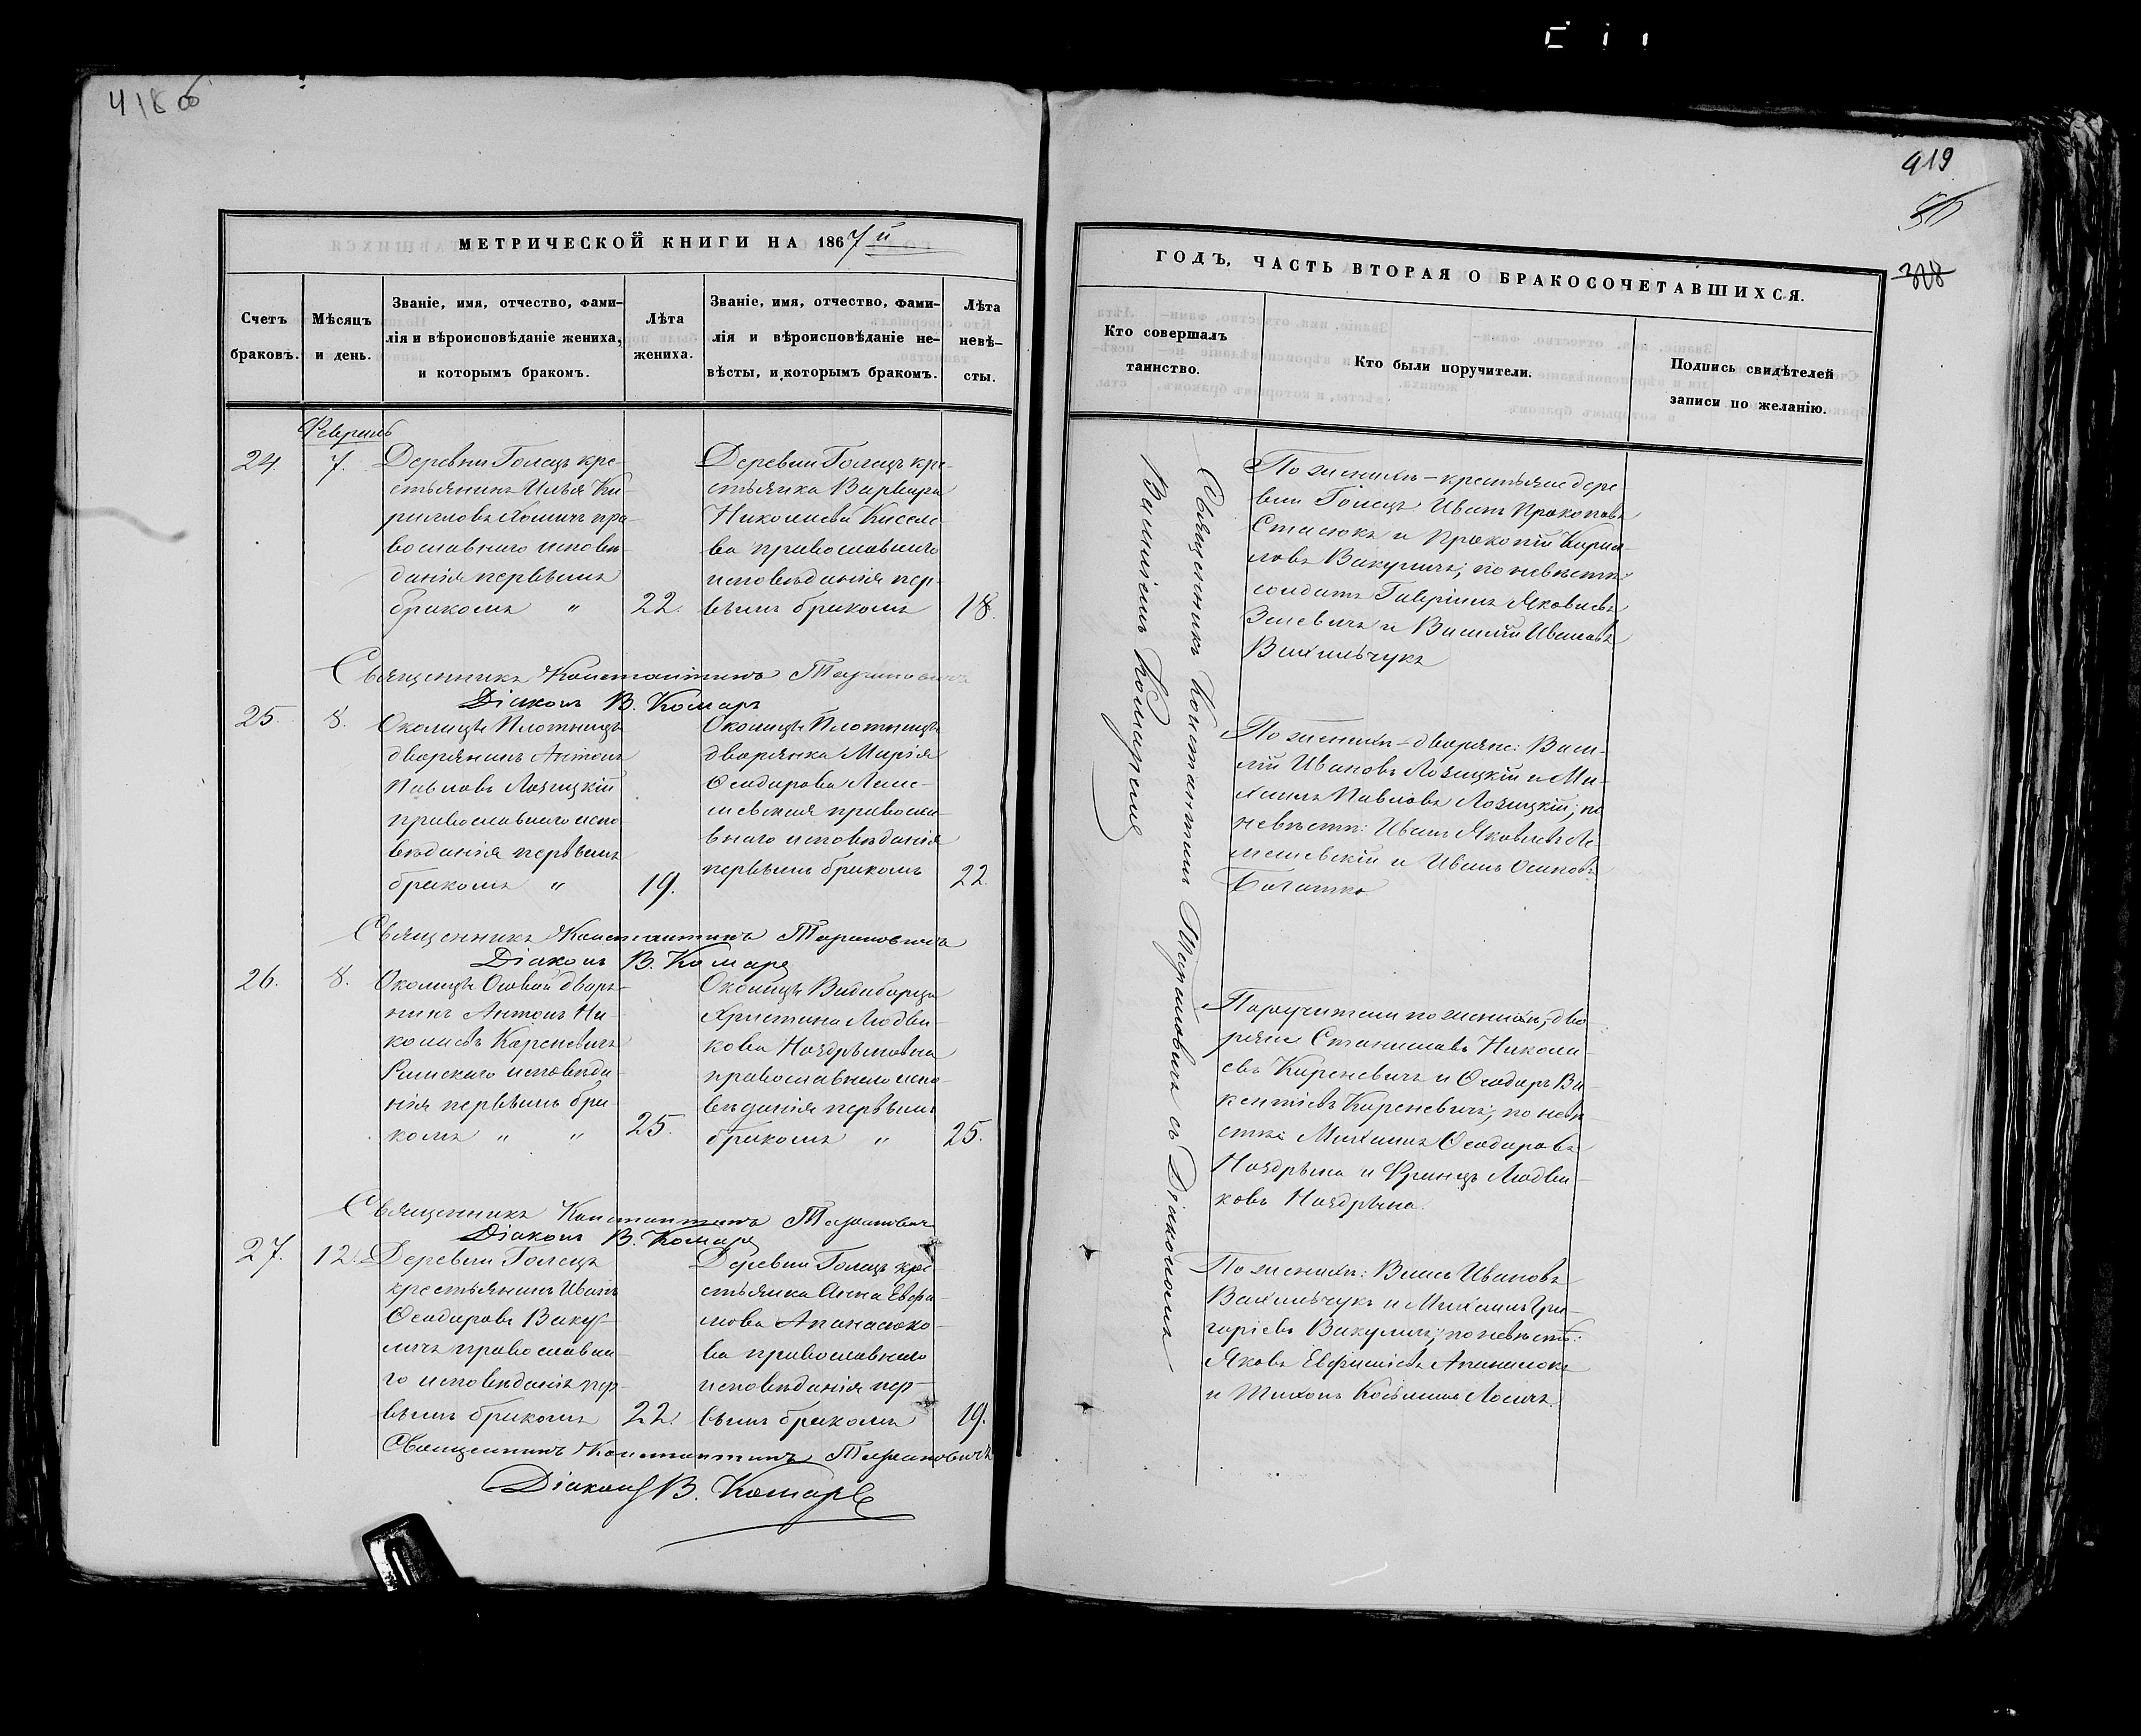 418 об
МЕТРИЧЕСКОЙ КНИГИ НА 1867й
Счетъ браковъ.
Мѣсяцъ и день.
Званіе, имя, отчество, фами-
лія и вѣроисповѣданіе жениха,
и которымъ бракомъ.
Лѣта жениха.
Званіе, имя, отчество, фами-
лія и вѣроисповѣданіе не-
вѣсты, и которымъ бракомъ.
Лѣта невѣ-
сты.
Февраль
24 7.
Деревни Голецъ кре-
стьянинъ Илья Ки-
рилловъ Хомичъ пра-
вославнаго исповѣ-
данія первымъ
бракомъ " 22.
Деревни Голецъ кре-
стьянка Варвара
Николаева Киселе-
ва православнаго
исповѣданія пер-
вымъ бракомъ 18.
Священникъ Константинъ Тарановичъ
Діаконъ В. Комаръ
25. 8.
Околицы Плотницъ
дворянинъ Антонъ
Павловъ Лозицкій
православнаго испо-
вѣданія первымъ
бракомъ " 19.
Околицы Плотницъ
дворянка Марія
Ѳеодорова Леме-
шевская правосла-
внаго исповѣданія
первымъ бракомъ 22
Священникъ Константинъ Тарановичъ
Діаконъ В. Комаръ
26. 8.
Околицы Особой дворя-
нинъ Антонъ Ни-
колаевъ Кореневичъ
Римскаго исповѣда-
нія первымъ бра-
комъ " " 25.
Околицы Видиборца
Христина Людви-
кова Ноздрынова
православнаго испо-
вѣданія первымъ
бракомъ " 25.
Священникъ Константинъ Тарановичъ
Діаконъ В. Комаръ
27. 12.
Деревни Голецъ
крестьянинъ Иванъ
Ѳеодоровъ Ваку-
личъ православна-
го исповѣданія пер-
вымъ бракомъ 22.
Деревни Голецъ кре-
стьянка Анна Евфи-
мова Апанасюко-
ва православнаго
исповѣданія пер-
вымъ бракомъ 19.
Священникъ Константинъ Тарановичъ
Діаконъ В. Комаръ
419
308
ГОДЪ, ЧАСТЬ ВТОРАЯ О БРАКОСОЧЕТАВШИХСЯ.
Кто совершалъ
таинство.
Кто были поручители.
Подпись свидѣтелей
записи по желанію.
Священникъ Константинъ Тарановичъ съ Діакономъ
Василіемъ Комаремъ
По женихѣ – крестьяне дере
вни Голецъ Иванъ Прокоповъ
Стасюкъ и Прокопій Кирил-
ловъ Вакуличъ; по невѣстѣ:
солдатъ Гавріилъ Яковлевъ
Зелевичъ и Василій Ивановъ
Вахильчукъ
По женихѣ – дворяне: Васи-
лій Ивановъ Лозицкій и Ми-
хаилъ Павловъ Лозицкій; по
невѣстѣ: Иванъ Яковлевъ Ле-
мешевскій и Иванъ Осиповъ
Богатко
Поручители по женихѣ, дво-
ряне Станиславъ Никола-
евъ Кореневичъ и Ѳеодоръ Ви-
кентіевъ Кореневичъ; по невѣ-
стѣ: Михаилъ Ѳеодоровъ
Ноздрынъ и Францъ Людви-
ковъ Ноздрынъ.
По женихѣ: Василій Ивановъ
Вахильчукъ и Михаилъ Гри-
горіевъ Вакуличъ; по невѣстѣ:
Яковъ Евфиміевъ Апанасюкъ
и Тихонъ Козьминъ Лосичъ.